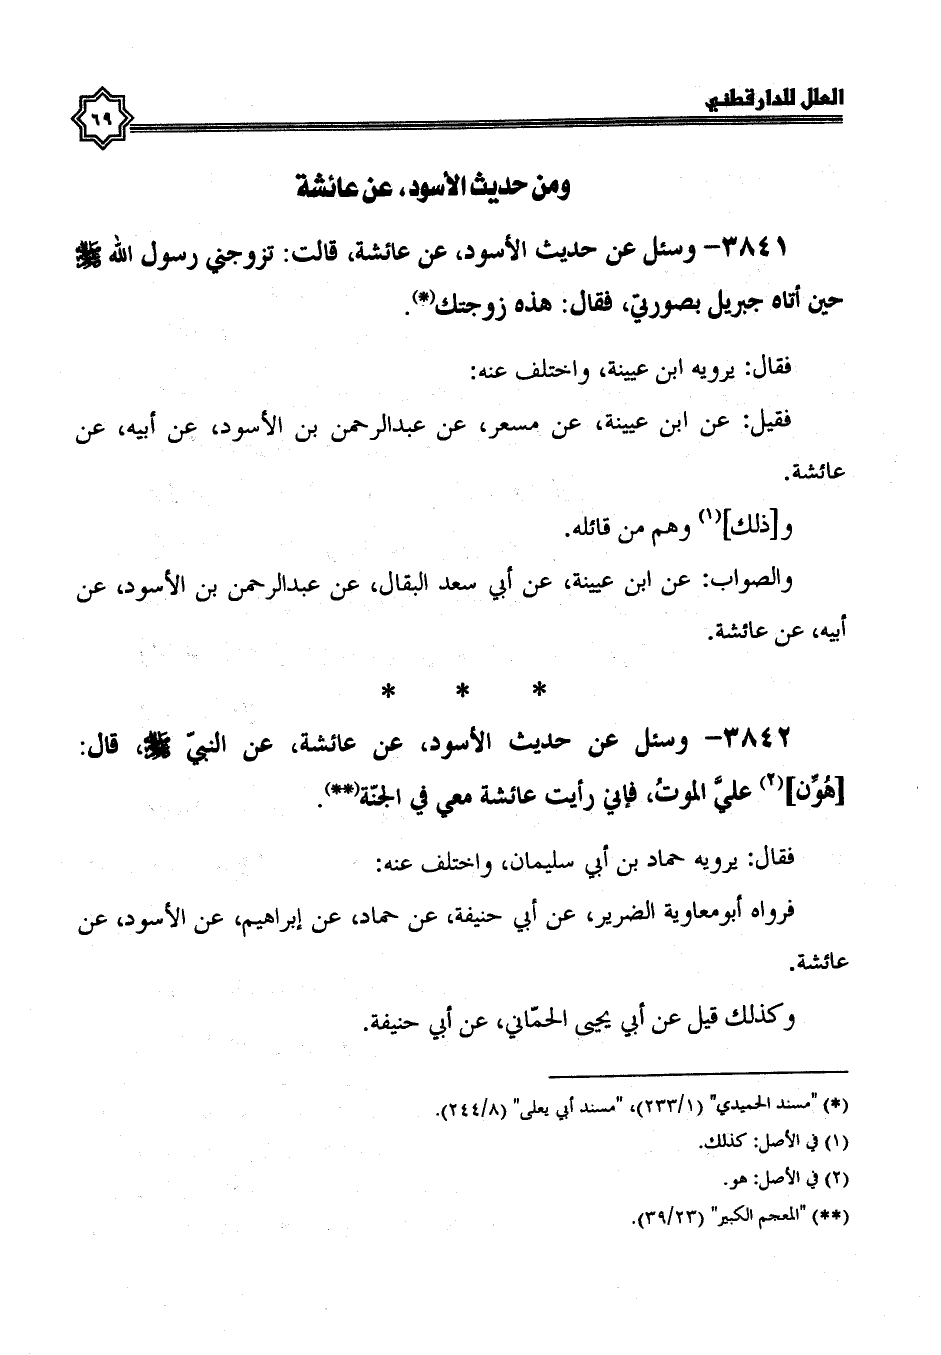 العلل للدارقطني
٦٩
ومن حديث الأسود، عن عائشة
٣٨٤١- وسئل عن حديث الأسود، عن عائشة، قالت: تزوجني رسول الله ﷺ
حين أتاه جبريل بصورتي، فقال: هذه زوجتك(*).
فقال: يرويه ابن عيينة، واختلف عنه:
فقيل: عن ابن عيينة، عن مسعر، عن عبدالرحمن بن الأسود، عن أبيه، عن
عائشة.
و[ذلك](١) وهم من قائله.
والصواب: عن ابن عيينة، عن أبي سعد البقال، عن عبدالرحمن بن الأسود، عن
أبيه، عن عائشة.
* * *
٣٨٤٢- وسئل عن حديث الأسود، عن عائشة، عن النبيّ ﷺ، قال:
[هُوِّن](٢) عليَّ الموتُ، فإني رأيت عائشة معي في الجنّة(**).
فقال: يرويه حماد بن أبي سليمان، واختلف عنه:
فرواه أبومعاوية الضرير، عن أبي حنيفة، عن حماد، عن إبراهيم، عن الأسود، عن
عائشة.
وكذلك قيل عن أبي يحيى الحمّاني، عن أبي حنيفة.
(*) "مسند الحميدي" (٢٣٣/١)، "مسند أبي يعلى" (٢٤٤/٨).
(١) في الأصل: كذلك.
(٢) في الأصل: هو.
(**) "المعجم الكبير" (٣٩/٢٣).